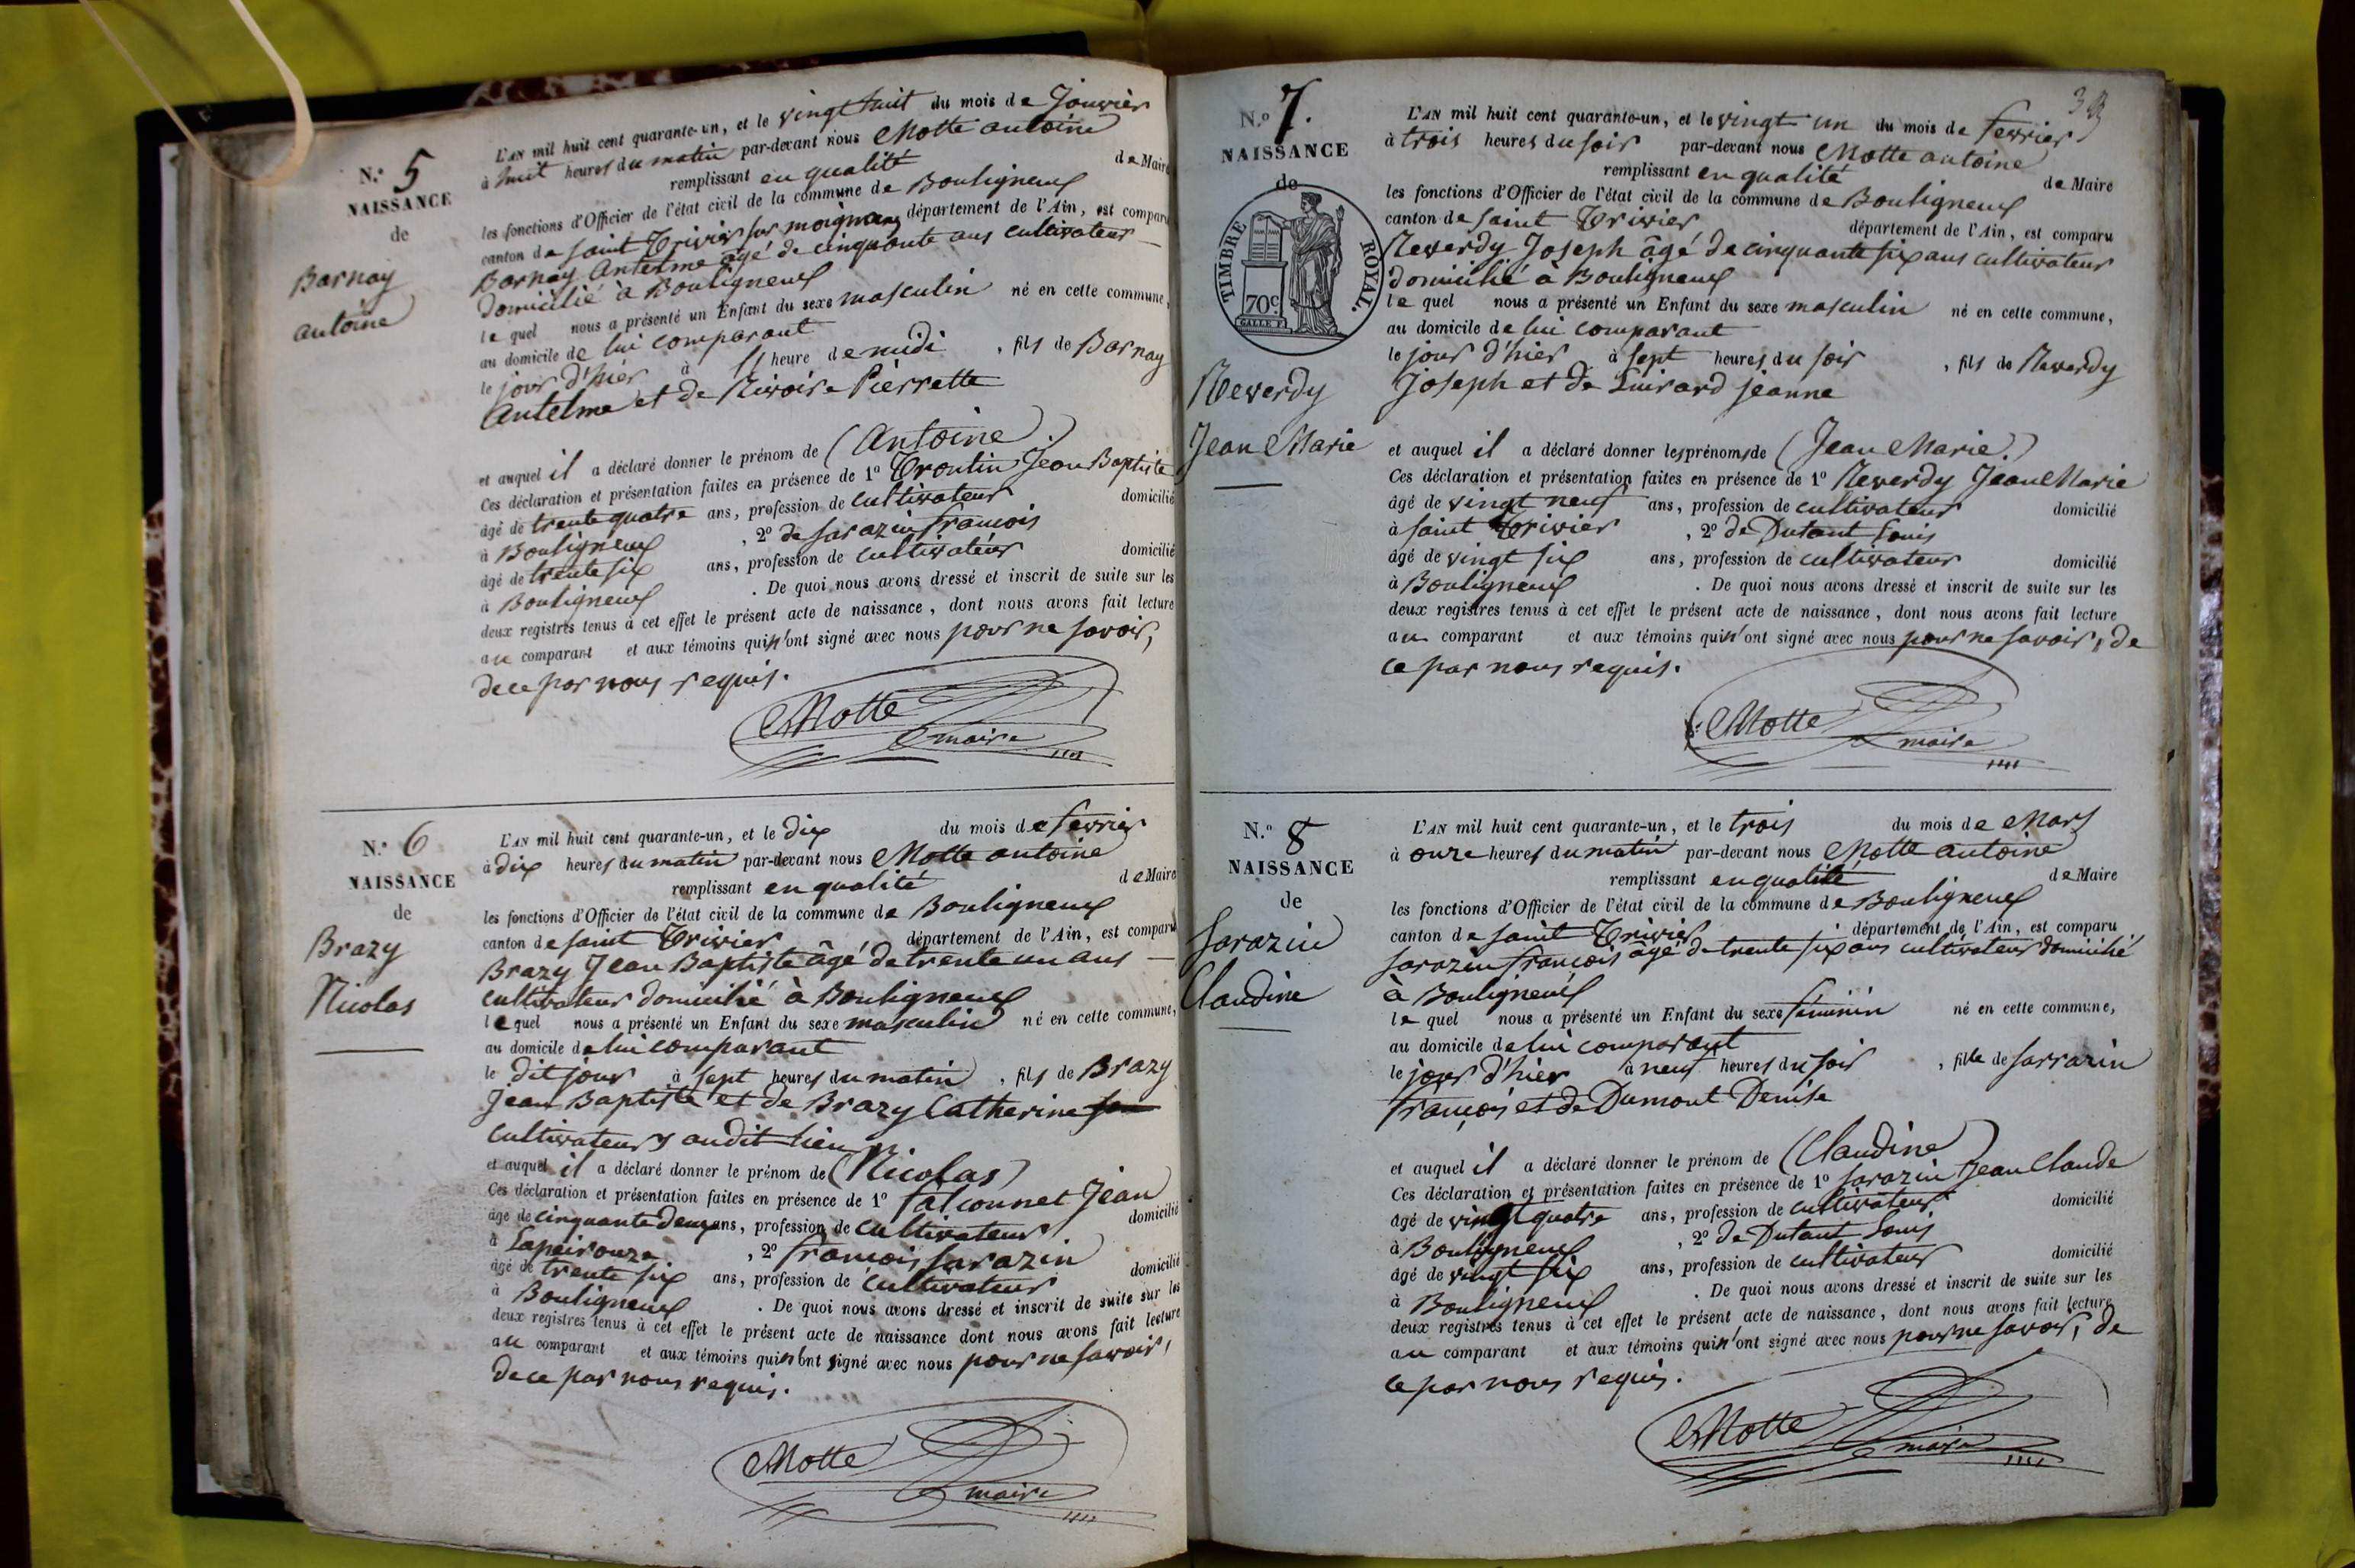 N.º 5
NAISSANCE
de
Barnay
antoine
L'AN mil huit cent quarante-un, et le vingt huit du mois de Janvier
à huit heures du matin par-devant nous Motte antoine
remplissant en qualité de Maire
les fonctions d'Officier de l'état civil de la commune de Bouligneux
canton de saint Trivier sur moignans département de l'Ain, est comparu
Barnay Antelme âgé de cinquante ans cultivateur
domicilié à Bouligneux
le quel nous a présenté un Enfant du sexe masculin né en cette commune,
au domicile de lui comparant
le jour d'hier à heure de midi, fils de Barnay
Antelme et de Rivoire Pierrette
et auquel il a déclaré donner le prénom de (Antoine)
Ces déclaration et présentation faites en présence de 1º Troulin Jean Baptiste
âgé de trente quatre ans, profession de cultivateur domicilié
à Bouligneux, 2º de sarazin françois
âgé de trente six ans, profession de cultivateur domicilié
à Bouligneux. De quoi nous avons dressé et inscrit de suite sur les
deux registres tenus à cet effet le présent acte de naissance, dont nous avons fait lecture
au comparant et aux témoins qui n'ont signé avec nous pour ne savoir,
de ce par nous requis.
Motte
maire
N.º 6
NAISSANCE
de
Brazy
Nicolas
L'AN mil huit cent quarante-un, et le dix du mois de fevrier
à dix heures du matin par-devant nous Motte antoine
remplissant en qualité de Maire
les fonctions d'Officier de l'état civil de la commune de Bouligneux
canton de saint Trivier département de l'Ain, est comparu
Brazy Jean Baptiste âgé de trente un ans
cultivateur domicilié à Bouligneux
le quel nous a présenté un Enfant du sexe masculin né en cette commune,
au domicile de lui comparant
le dit jour à sept heures du matin, fils de Brazy
Jean Baptiste et de Brazy Catherine
cultivateurs audit lieu
et auquel il a déclaré donner le prénom de (Nicolas)
Ces déclaration et présentation faites en présence de 1º falconnet Jean
âgé de cinquante deux ans, profession de cultivateur domicilié
à Lapeirouze, 2º françois sarazin
âgé de trente six ans, profession de cultivateur domicilié
à Bouligneux. De quoi nous avons dressé et inscrit de suite sur les
deux registres tenus à cet effet le présent acte de naissance dont nous avons fait lecture
au comparant et aux témoins qui n'ont signé avec nous pour ne savoir,
de ce par nous requis.
Motte
maire
N.º 7.
NAISSANCE
de
TIMBRE ROYAL.
70 C.
Reverdy
Jean Marie
L'AN mil huit cent quarante-un, et le vingt un du mois de fevrier
à trois heures du soir par-devant nous Motte antoine
remplissant en qualité de Maire
les fonctions d'Officier de l'état civil de la commune de Bouligneux
canton de saint Trivier département de l'Ain, est comparu
Reverdy Joseph âgé de cinquante six ans cultivateur
domicilié à Bouligneux
le quel nous a présenté un Enfant du sexe masculin né en cette commune,
au domicile de lui comparant
le jour d'hier à sept heures du soir, fils de Reverdy
Joseph et de Guirard jeanne
et auquel il a déclaré donner les prénoms de (Jean Marie.)
Ces déclaration et présentation faites en présence de 1º Reverdy Jean Marie
âgé de vingt neuf ans, profession de cultivateur domicilié
à saint Trivier, 2º de Dutant Louis
âgé de vingt six ans, profession de cultivateur domicilié
à Bouligneux. De quoi nous avons dressé et inscrit de suite sur les
deux registres tenus à cet effet le présent acte de naissance, dont nous avons fait lecture
au comparant et aux témoins qui n'ont signé avec nous pour ne savoir, de
ce par nous requis.
Motte
maire
N.º 8
NAISSANCE
de
Sarazin
Claudine
L'AN mil huit cent quarante-un, et le trois du mois de Mars
à onze heures du matin par-devant nous Motte antoine
remplissant en qualité de Maire
les fonctions d'Officier de l'état civil de la commune de Bouligneux
canton de saint Trivier département de l'Ain, est comparu
sarazin françois âgé de trente six ans cultivateur domicilié
à Bouligneux
le quel nous a présenté un Enfant du sexe féminin né en cette commune,
au domicile de lui comparant
le jour d'hier à neuf heures du soir, fille de sarrazin
françois et de Dumont Denise
et auquel il a déclaré donner le prénom de (Claudine)
Ces déclaration et présentation faites en présence de 1º sarazin Jean Claude
âgé de vingt quatre ans, profession de cultivateur domicilié
à Bouligneux, 2º de Dutant Louis
âgé de vingt six ans, profession de cultivateur domicilié
à Bouligneux. De quoi nous avons dressé et inscrit de suite sur les
deux registres tenus à cet effet le présent acte de naissance, dont nous avons fait lecture
au comparant et aux témoins qui n'ont signé avec nous pour ne savoir, de
ce par nous requis.
Motte
maire